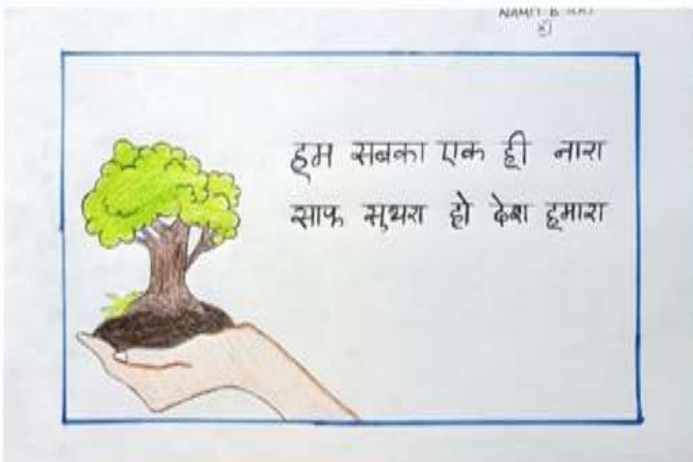 हम सबका एक ही नारा
साफ सुथरा हो देश हमारा